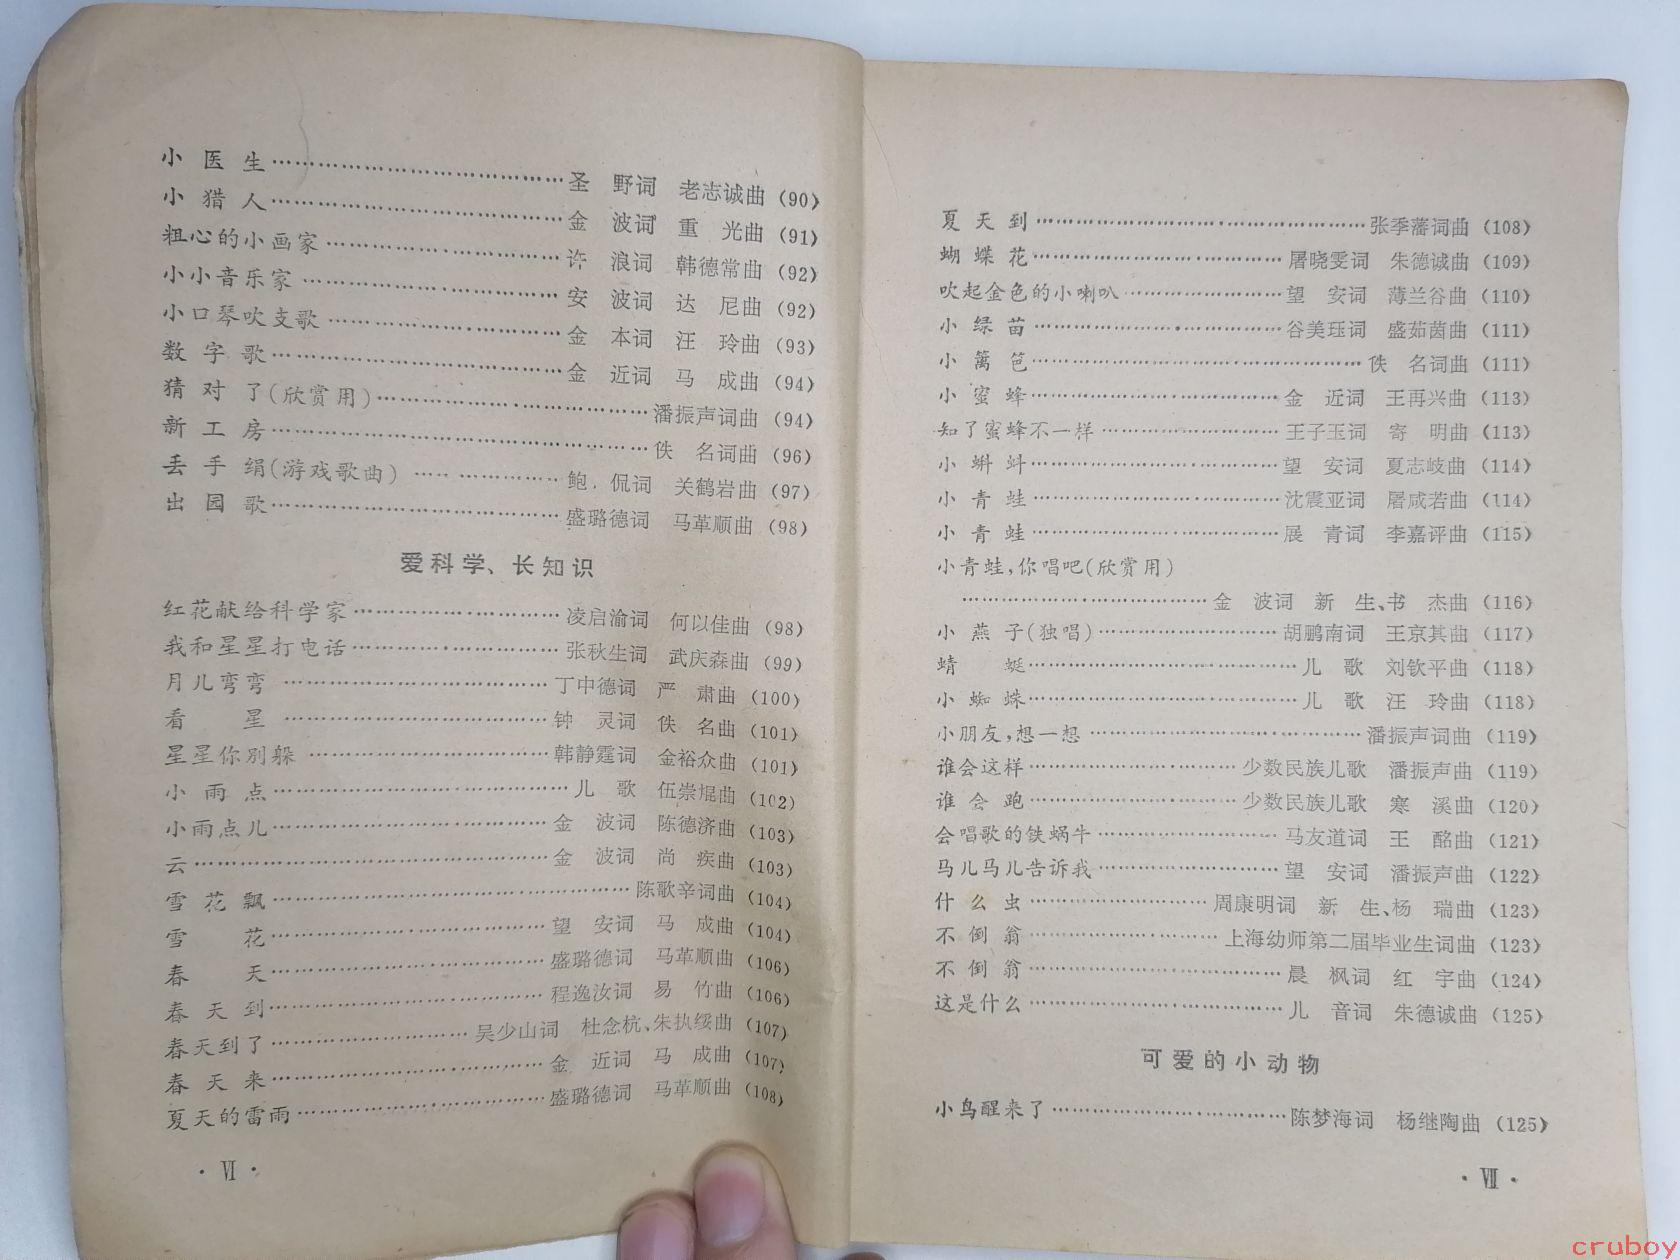 小医生……圣野词 老志诚曲 (90)
小猎人……金波词 重光曲 (91)
粗心的小画家……许浪词 韩德常曲 (92)
小小音乐家……安波词 达尼曲 (92)
小口琴吹支歌……金本词 汪玲曲 (93)
数字歌……金近词 马成曲 (94)
猜对了(欣赏用)……潘振声词曲 (94)
新工房……佚名词曲 (96)
丢手绢(游戏歌曲)……鲍侃词 关鹤岩曲 (97)
出园歌……盛璐德词 马革顺曲 (98)
爱科学、长知识
红花献给科学家……凌启渝词 何以佳曲 (98)
我和星星打电话……张秋生词 武庆森曲 (99)
月儿弯弯……丁中德词 严肃曲 (100)
看星……钟灵词 佚名曲 (101)
星星你别躲……韩静霆词 金裕众曲 (101)
小雨点……儿歌 伍崇焜曲 (102)
小雨点儿……金波词 陈德济曲 (103)
云……金波词 尚疾曲 (103)
雪花飘……陈歌辛词曲 (104)
雪花……望安词 马成曲 (104)
春天……盛璐德词 马革顺曲 (106)
春天到……程逸汝词 易竹曲 (106)
春天到了……吴少山词 杜念杭、朱执绥曲 (107)
春天来……金近词 马成曲 (107)
夏天的雷雨……盛璐德词 马革顺曲 (108)
· Ⅵ ·
夏天到……张季藩词曲 (108)
蝴蝶花……屠晓雯词 朱德诚曲 (109)
吹起金色的小喇叭……望安词 薄兰谷曲 (110)
小绿苗……谷美珏词 盛茹茵曲 (111)
小篱笆……佚名词曲 (111)
小蜜蜂……金近词 王再兴曲 (113)
知了蜜蜂不一样……王子玉词 寄明曲 (113)
小蝌蚪……望安词 夏志岐曲 (114)
小青蛙……沈震亚词 屠咸若曲 (114)
小青蛙……展青词 李嘉评曲 (115)
小青蛙,你唱吧(欣赏用)
……金波词 新生、书杰曲 (116)
小燕子(独唱)……胡鹏南词 王京其曲 (117)
蜻蜓……儿歌 刘钦平曲 (118)
小蜘蛛……儿歌 汪玲曲 (118)
小朋友,想一想……潘振声词曲 (119)
谁会这样……少数民族儿歌 潘振声曲 (119)
谁会跑……少数民族儿歌 寒溪曲 (120)
会唱歌的铁蜗牛……马友道词 王酩曲 (121)
马儿马儿告诉我……望安词 潘振声曲 (122)
什么虫……周康明词 新生、杨瑞曲 (123)
不倒翁……上海幼师第二届毕业生词曲 (123)
不倒翁……晨枫词 红宇曲 (124)
这是什么……儿音词 朱德诚曲 (125)
可爱的小动物
小鸟醒来了……陈梦海词 杨继陶曲 (125)
· Ⅶ ·
cruboy